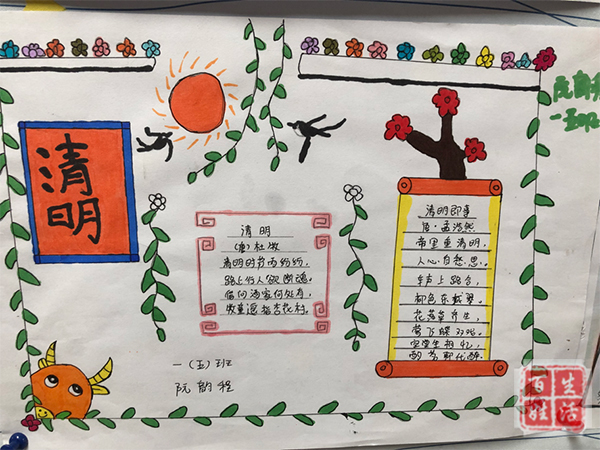 清明
清 明
(唐)杜牧
清明时节雨纷纷,
路上行人欲断魂。
借问酒家何处有,
牧童遥指杏花村。
一(五)班
阮韵程
清明即事
唐·孟浩然
帝里重清明,
人心自愁思。
车声上路合,
柳色东城翠。
花落草齐生,
莺飞蝶双戏。
空堂坐相忆,
酌茗聊代醉
阮韵
一五班
百姓生活